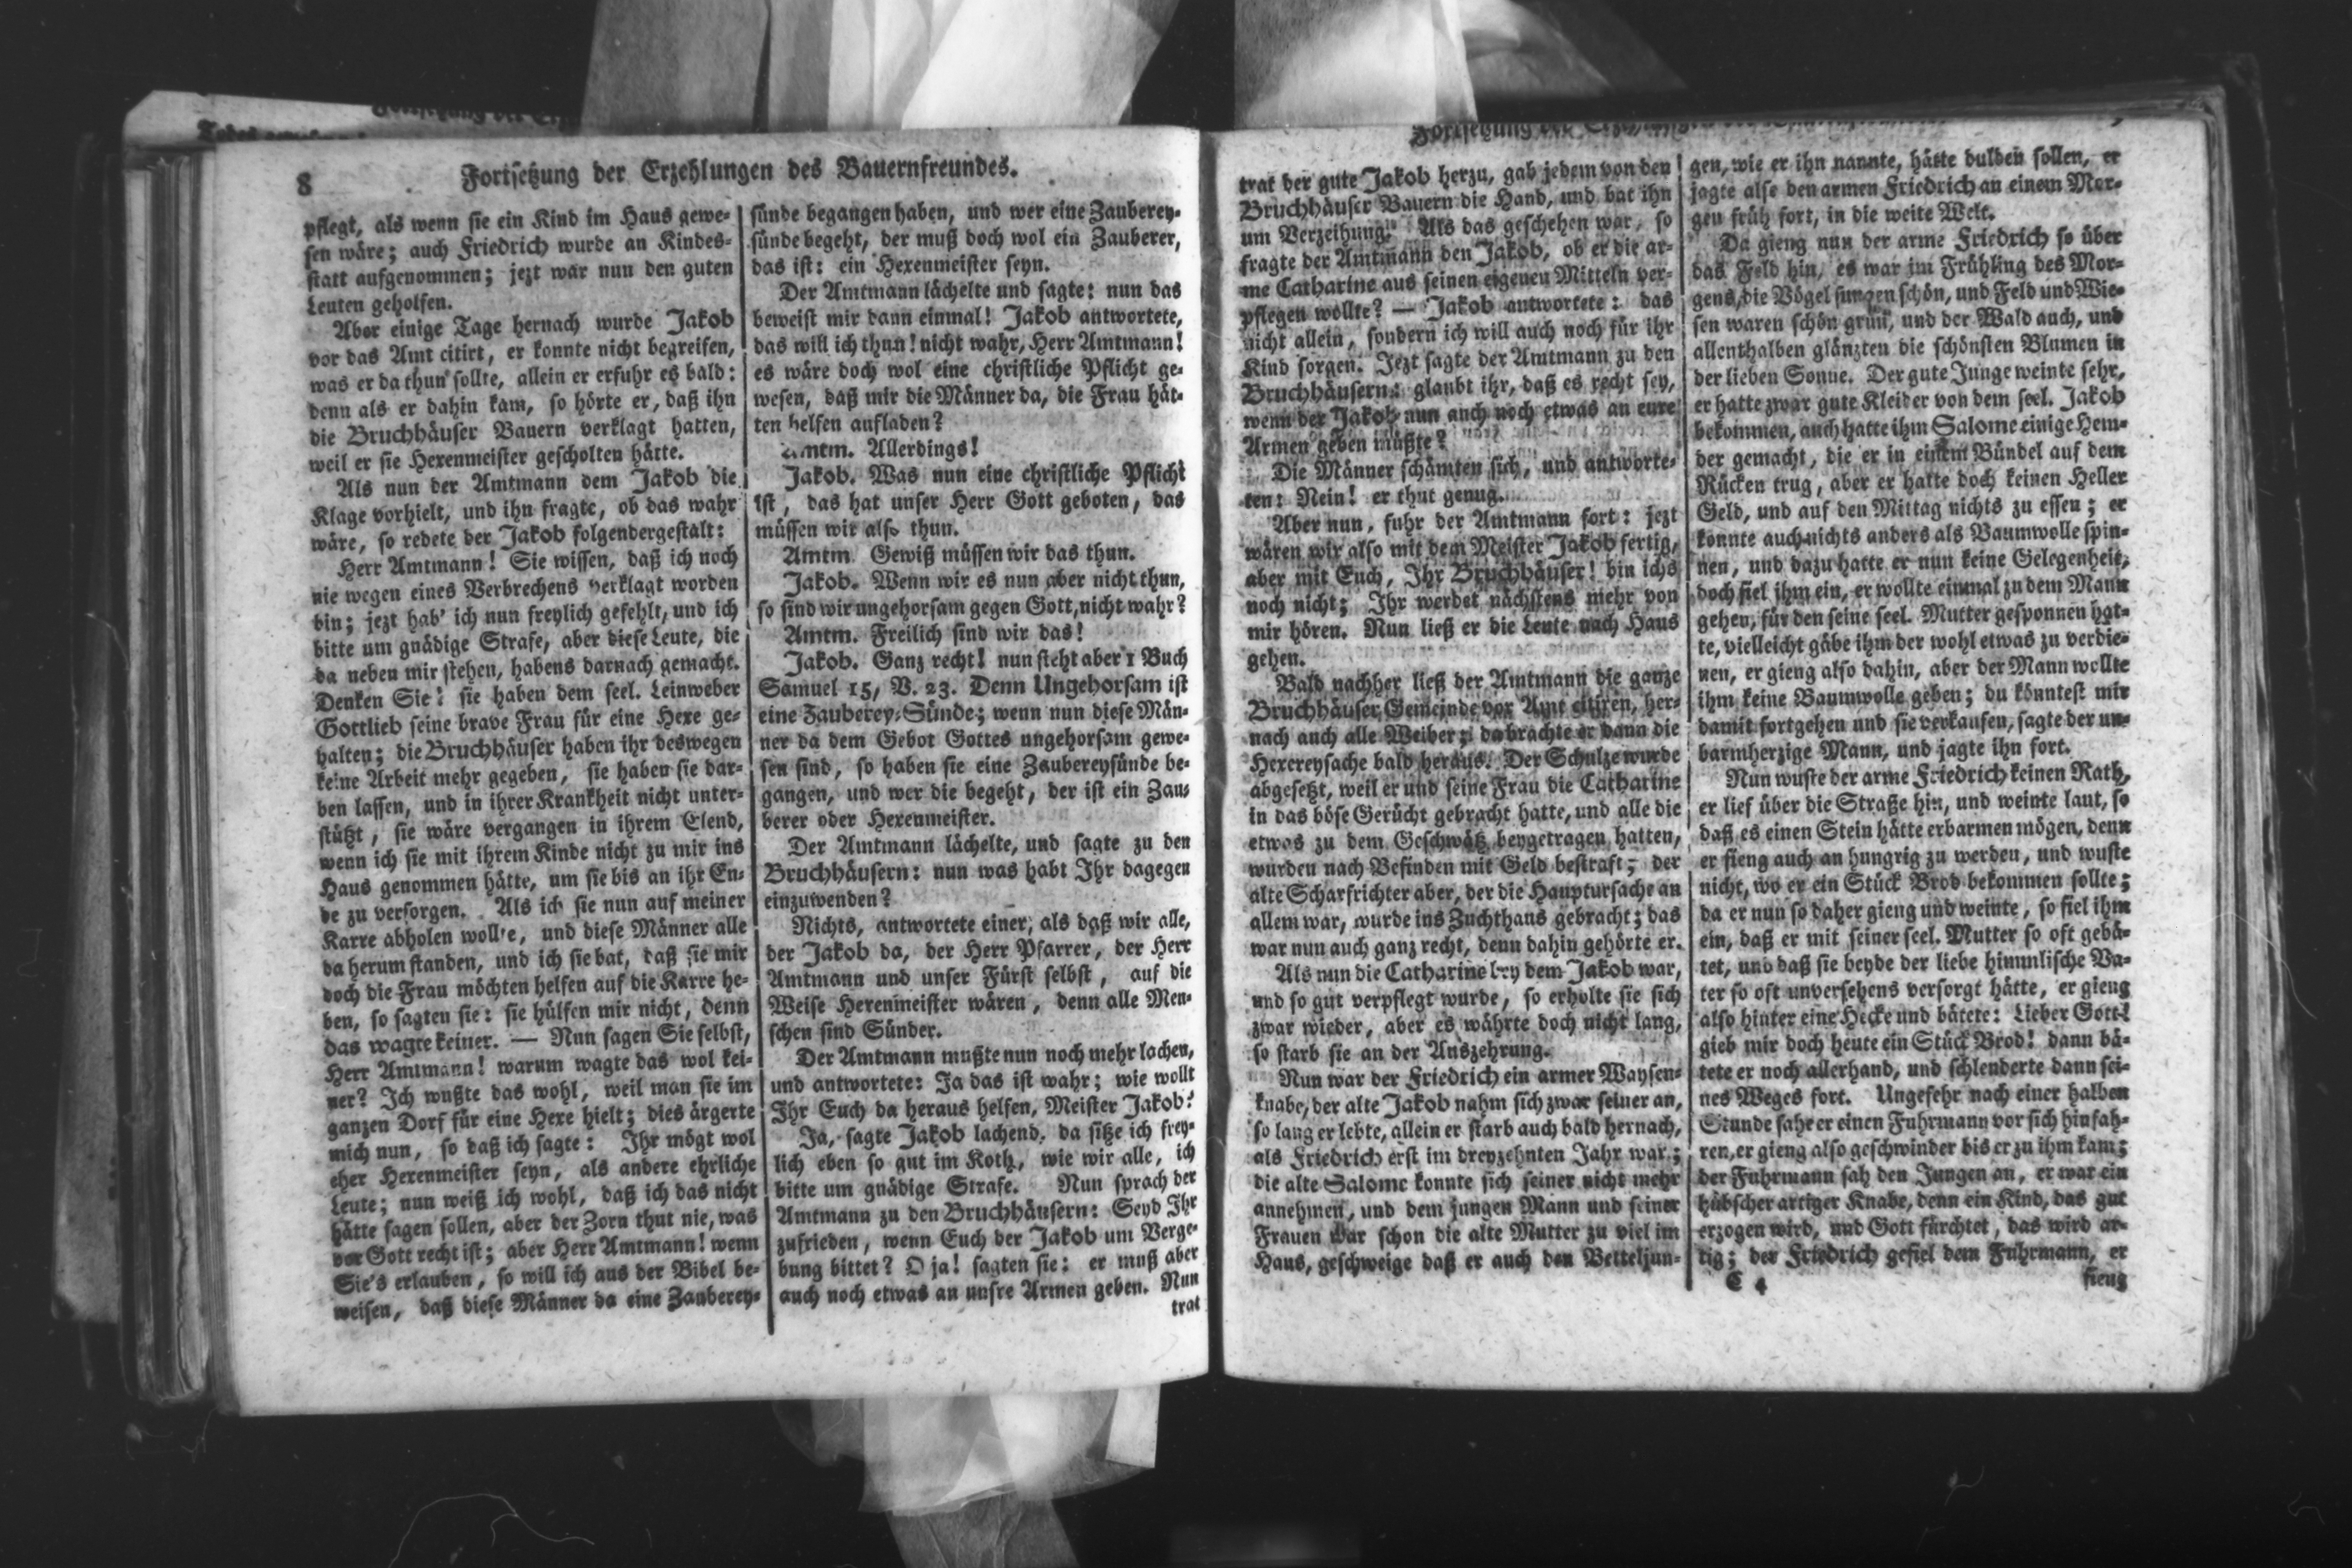 8
Fortsetzung der Erzehlungen des Bauernfreundes.
pflegt, als wenn sie ein Kind im Haus gewe-
sen wäre; auch Friedrich wurde an Kindes-
statt aufgenommen; jezt war nun den guten
Leuten geholfen.
Aber einige Tage hernach wurde Jakob
vor das Amt citirt, er konnte nicht begreifen,
was er da thun sollte, allein er erfuhr es bald:
denn als er dahin kam, so hörte er, daß ihn
die Bruchhäuser Bauern verklagt hatten,
weil er sie Hexenmeister gescholten hätte.
Als nun der Amtmann dem Jakob die
Klage vorhielt, und ihn fragte, ob das wahr
wäre, so redete der Jakob folgendergestalt:
Herr Amtmann! Sie wissen, daß ich noch
nie wegen eines Verbrechens verklagt worden
bin; jezt hab' ich nun freylich gefehlt, und ich
bitte um gnädige Strafe, aber diese Leute, die
da neben mir stehen, habens darnach gemacht.
Denken Sie! sie haben dem seel. Leinweber
Gottlieb seine brave Frau für eine Hexe ge-
halten; die Bruchhäuser haben ihr deswegen
keine Arbeit mehr gegeben, sie haben sie dar-
ben lassen, und in ihrer Krankheit nicht unter-
stützt, sie wäre vergangen in ihrem Elend,
wenn ich sie mit ihrem Kinde nicht zu mir ins
Haus genommen hätte, um sie bis an ihr En-
de zu versorgen. Als ich sie nun auf meiner
Karre abholen wollte, und diese Männer alle
da herum standen, und ich sie bat, daß sie mir
doch die Frau möchten helfen auf die Karre he-
ben, so sagten sie: sie hülfen mir nicht, denn
das wagte keiner. — Nun sagen Sie selbst,
Herr Amtmann! warum wagte das wol kei-
ner? Ich wußte das wohl, weil man sie im
ganzen Dorf für eine Hexe hielt; dies ärgerte
mich nun, so daß ich sagte: Ihr mögt wol
eher Hexenmeister seyn, als andere ehrliche
Leute; nun weiß ich wohl, daß ich das nicht
hätte sagen sollen, aber der Zorn thut nie, was
vor Gott recht ist; aber Herr Amtmann! wenn
Sie's erlauben, so will ich aus der Bibel be-
weisen, daß diese Männer da eine Zauberey-
sünde begangen haben, und wer eine Zauberey-
sünde begeht, der muß doch wol ein Zauberer,
das ist: ein Hexenmeister seyn.
Der Amtmann lächelte und sagte: nun das
beweist mir dann einmal! Jakob antwortete,
das will ich thun! nicht wahr, Herr Amtmann!
es wäre doch wol eine christliche Pflicht ge-
wesen, daß mir die Männer da, die Frau hät-
ten helfen aufladen?
Amtm. Allerdings!
Jakob. Was nun eine christliche Pflicht
ist, das hat unser Herr Gott geboten, das
müssen wir also thun.
Amtm. Gewiß müssen wir das thun.
Jakob. Wenn wir es nun aber nicht thun,
so sind wir ungehorsam gegen Gott, nicht wahr?
Amtm. Freilich sind wir das!
Jakob. Ganz recht! nun steht aber 1 Buch
Samuel 15, V. 23. Denn Ungehorsam ist
eine Zauberey-Sünde; wenn nun diese Män-
ner da dem Gebot Gottes ungehorsam gewe-
sen sind, so haben sie eine Zaubereysünde be-
gangen, und wer die begeht, der ist ein Zau-
berer oder Hexenmeister.
Der Amtmann lächelte, und sagte zu den
Bruchhäusern: nun was habt Ihr dagegen
einzuwenden?
Nichts, antwortete einer, als daß wir alle,
der Jakob da, der Herr Pfarrer, der Herr
Amtmann und unser Fürst selbst, auf die
Weise Hexenmeister wären, denn alle Men-
schen sind Sünder.
Der Amtmann mußte nun noch mehr lachen,
und antwortete: Ja das ist wahr; wie wollt
Ihr Euch da heraus helfen, Meister Jakob?
Ja, sagte Jakob lachend, da sitze ich frey-
lich eben so gut im Koth, wie wir alle, ich
bitte um gnädige Strafe. Nun sprach der
Amtmann zu den Bruchhäusern: Seyd Ihr
zufrieden, wenn Euch der Jakob um Verge-
bung bittet? O ja! sagten sie: er muß aber
auch noch etwas an unsre Armen geben. Nun
trat
Fortsetzung der
trat der gute Jakob herzu, gab jedem von den
Bruchhäuser Bauern die Hand, und bat ihn
um Verzeihung. Als das geschehen war, so
fragte der Amtmann den Jakob, ob er die ar-
me Catharine aus seinen eigenen Mitteln ver-
pflegen wollte? — Jakob antwortete: das
nicht allein, sondern ich will auch noch für ihr
Kind sorgen. Jezt sagte der Amtmann zu den
Bruchhäusern: glaubt ihr, daß es recht sey,
wenn der Jakob nun auch noch etwas an eure
Armen geben müßte?
Die Männer schämten sich, und antworte-
ten: Nein! er thut genug.
Aber nun, fuhr der Amtmann fort: jezt
wären wir also mit dem Meister Jakob fertig,
aber mit Euch, Ihr Bruchhäuser! bin ichs
noch nicht; Ihr werdet nächstens mehr von
mir hören. Nun ließ er die Leute nach Haus
gehen.
Bald nachher ließ der Amtmann die ganze
Bruchhäuser Gemeinde vor Amt citiren, her-
nach auch alle Weiber; da brachte er dann die
Hexereysache bald heraus. Der Schulze wurde
abgesetzt, weil er und seine Frau die Catharine
in das böse Gerücht gebracht hatte, und alle die
etwas zu dem Geschwätz beygetragen hatten,
wurden nach Befinden mit Geld bestraft; der
alte Scharfrichter aber, der die Hauptursache an
allem war, wurde ins Zuchthaus gebracht; das
war nun auch ganz recht, denn dahin gehörte er.
Als nun die Catharine bey dem Jakob war,
und so gut verpflegt wurde, so erholte sie sich
zwar wieder, aber es währte doch nicht lang,
so starb sie an der Auszehrung.
Nun war der Friedrich ein armer Waysen-
knabe, der alte Jakob nahm sich zwar seiner an,
so lang er lebte, allein er starb auch bald hernach,
als Friedrich erst im dreyzehnten Jahr war;
die alte Salome konnte sich seiner nicht mehr
annehmen, und dem jungen Mann und seiner
Frauen war schon die alte Mutter zu viel im
Haus, geschweige daß er auch den Betteljun-
gen, wie er ihn nannte, hätte dulden sollen, er
jagte also den armen Friedrich an einem Mor-
gen früh fort, in die weite Welt.
Da gieng nun der arme Friedrich so über
das Feld hin, es war im Frühling des Mor-
gens, die Vögel sungen schön, und Feld und Wie-
sen waren schön grün, und der Wald auch, und
allenthalben glänzten die schönsten Blumen in
der lieben Sonne. Der gute Junge weinte sehr,
er hatte zwar gute Kleider von dem seel. Jakob
bekommen, auch hatte ihm Salome einige Hem-
der gemacht, die er in einem Bündel auf dem
Rücken trug, aber er hatte doch keinen Heller
Geld, und auf den Mittag nichts zu essen; er
konnte auch nichts anders als Baumwolle spin-
nen, und dazu hatte er nun keine Gelegenheit,
doch fiel ihm ein, er wollte einmal zu dem Mann
gehen, für den seine seel. Mutter gesponnen hat-
te, vielleicht gäbe ihm der wohl etwas zu verdie-
nen, er gieng also dahin, aber der Mann wollte
ihm keine Baumwolle geben; du könntest mir
damit fortgehen und sie verkaufen, sagte der un-
barmherzige Mann, und jagte ihn fort.
Nun wuste der arme Friedrich keinen Rath,
er lief über die Straße hin, und weinte laut, so
daß es einen Stein hätte erbarmen mögen, denn
er fieng auch an hungrig zu werden, und wuste
nicht, wo er ein Stück Brod bekommen sollte;
da er nun so daher gieng und weinte, so fiel ihm
ein, daß er mit seiner seel. Mutter so oft gebä-
tet, und daß sie beyde der liebe himmlische Va-
ter so oft unversehens versorgt hätte, er gieng
also hinter eine Hecke und bätete: Lieber Gott!
gieb mir doch heute ein Stück Brod! dann bä-
tete er noch allerhand, und schlenderte dann sei-
nes Weges fort. Ungefehr nach einer halben
Stunde sahe er einen Fuhrmann vor sich hinfah-
ren, er gieng also geschwinder bis er zu ihm kam;
der Fuhrmann sah den Jungen an, er war ein
hübscher artiger Knabe, denn ein Kind, das gut
erzogen wird, und Gott fürchtet, das wird ar-
tig; der Friedrich gefiel dem Fuhrmann, er
C 4
fieng